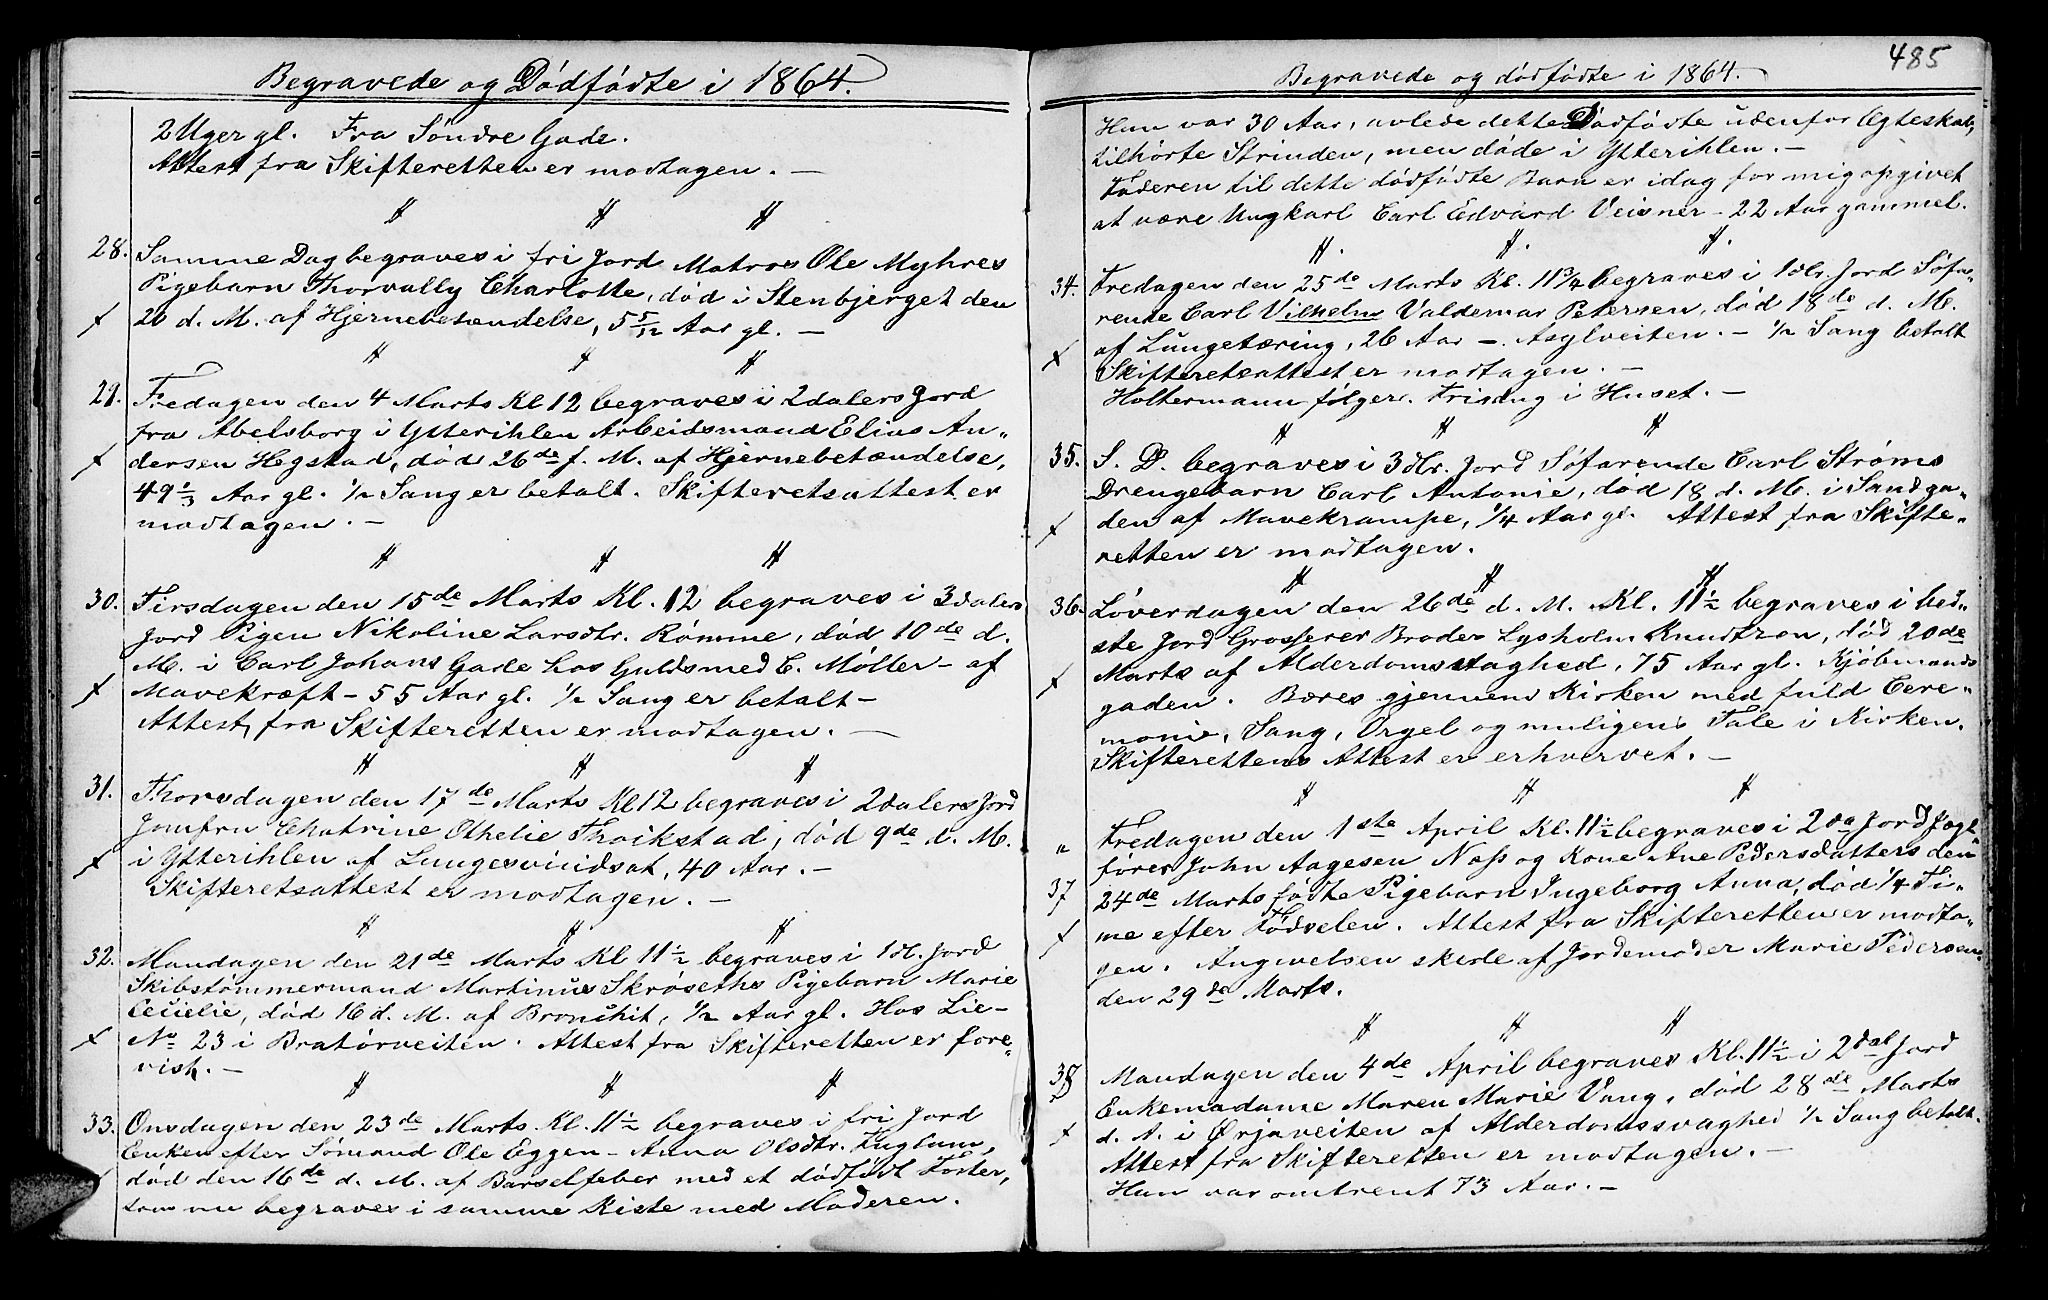 Begravede og Dødfødte i 1864.
2 Uger gl. Fra Søndre Gade.
Attest fra Skifteretten er modtagen. —
28. Samme Dag begraves i fri Jord Matros Ole Myhres
Pigebarn Thorvally Charlotte, død i Stenbjerget den
20 d. M. af Hjernebetændelse, 5 5/12 Aar gl. —
29. Fredagen den 4 Marts Kl 12 begraves i 2dalers Jord
fra Abelsborg i Ytterihlen Arbeidsmand Elias An„
dersen Hegstad, død 26de f. M. af Hjernebetændelse,
49 1/3 Aar gl. 1/2 Sang er betalt. Skifteretsattest er
modtagen. —
30. Tirsdagen den 15de Marts Kl. 12 begraves i 3dalers
Jord Pigen Nikoline Larsdtr. Rømme, død 10de d.
M. i Carl Johans Gade hos Guldsmed C. Møller — af
Mavekræft — 55 Aar gl. 1/2 Sang er betalt —
Attest fra Skifteretten er modtagen. —
31. Thorsdagen den 17de Marts Kl 12 begraves i 2dalers Jord
Jomfru Chatrine Othelie Thoikstad, død 9de d. M.
i Ytterihlen af Lungesvindsot, 40 Aar. —
Skifteretsattest er modtagen. —
32. Mandagen den 21de Marts Kl 11 1/2 begraves i 1dl. Jord
Skibstømmermand Martinus Skrøseths Pigebarn Marie
Cecielie, død 16 d. M. af Bronchit, 1/2 Aar gl. Hos Lie —
No 23 i Bratørveiten. Attest fra Skifteretten er fore„
vist. —
33. Onsdagen den 23de Marts Kl. 11 1/2 begraves i fri Jord
Enken efter Sømand Ole Eggen — Anna Olsdtr. Fuglum,
død den 16de d. M. af Barselfeber med et dødfødt Foster,
som nu begraves i samme Kiste med Moderen.
485
Begravede og dødfødte i 1864.
Hun var 30 Aar, avlede dette Dødfødte udenfor Ægteskab,
tilhørte Strinden, men døde i Ytterihlen. —
Faderen til dette dødfødte Barn er idag for mig opgivet
at være Ungkarl Carl Edvard Veisner — 22 Aar gammel.
34. Fredagen den 25de Marts Kl. 11 3/4 begraves i 1dlr. Jord Søfa„
rende Carl Vilhelm Valdemar Petersen, død 18de d. M.
af Lungetæring, 26 Aar —. Asylveiten. — 1/2 Sang betalt
Skifteretsattest er modtagen. —
Holtermann følger. Frisdug i Huset. —
35. S. D. begraves i 3dlr. Jord Søfarende Carl Strøms
Drengebarn Carl Antonie, død 18 d. M. i Sandga„
den af Mavekrampe, 1/4 Aar gl. Attest fra Skifte„
retten er modtagen.
36. Løverdagen den 26de d. M. Kl. 11 1/2 begraves i bed„
ste Jord Grosserer Broder Lysholm Knudtzon, død 20de
Marts af Alderdomssvaghed, 75 Aar gl. Kjøbmands
gaden. Bæres gjennem Kirken med fuld Cere„
monie, Sang, Orgel og muligens Tale i Kirken.
Skifterettens Attest er erhvervet. —
" Fredagen den 1ste April Kl. 11 1/2 begraves i 2da Jord Fogl„
fører John Aagesen Næss og Kone Ane Pedersdatters den
37 24de Marts fødte Pigebarn Ingeborg Anna, død 1/4 Ti„
me efter Fødselen. Attest fra Skifteretten er modta„
gen. Angivelsen skede af Jordemoder Marie Pedersen
den 29de Marts.
38 Mandagen den 4de April begraves Kl. 11 1/2 i 2dal Jord
Enkemadame Maren Marie Vang, død 28de Marts
d. A. i Ørjaveiten af Alderdomssvaghed 1/2 Sang betalt.
Attest fra Skifteretten er modtagen. —
Hun var omtrent 73 Aar. —